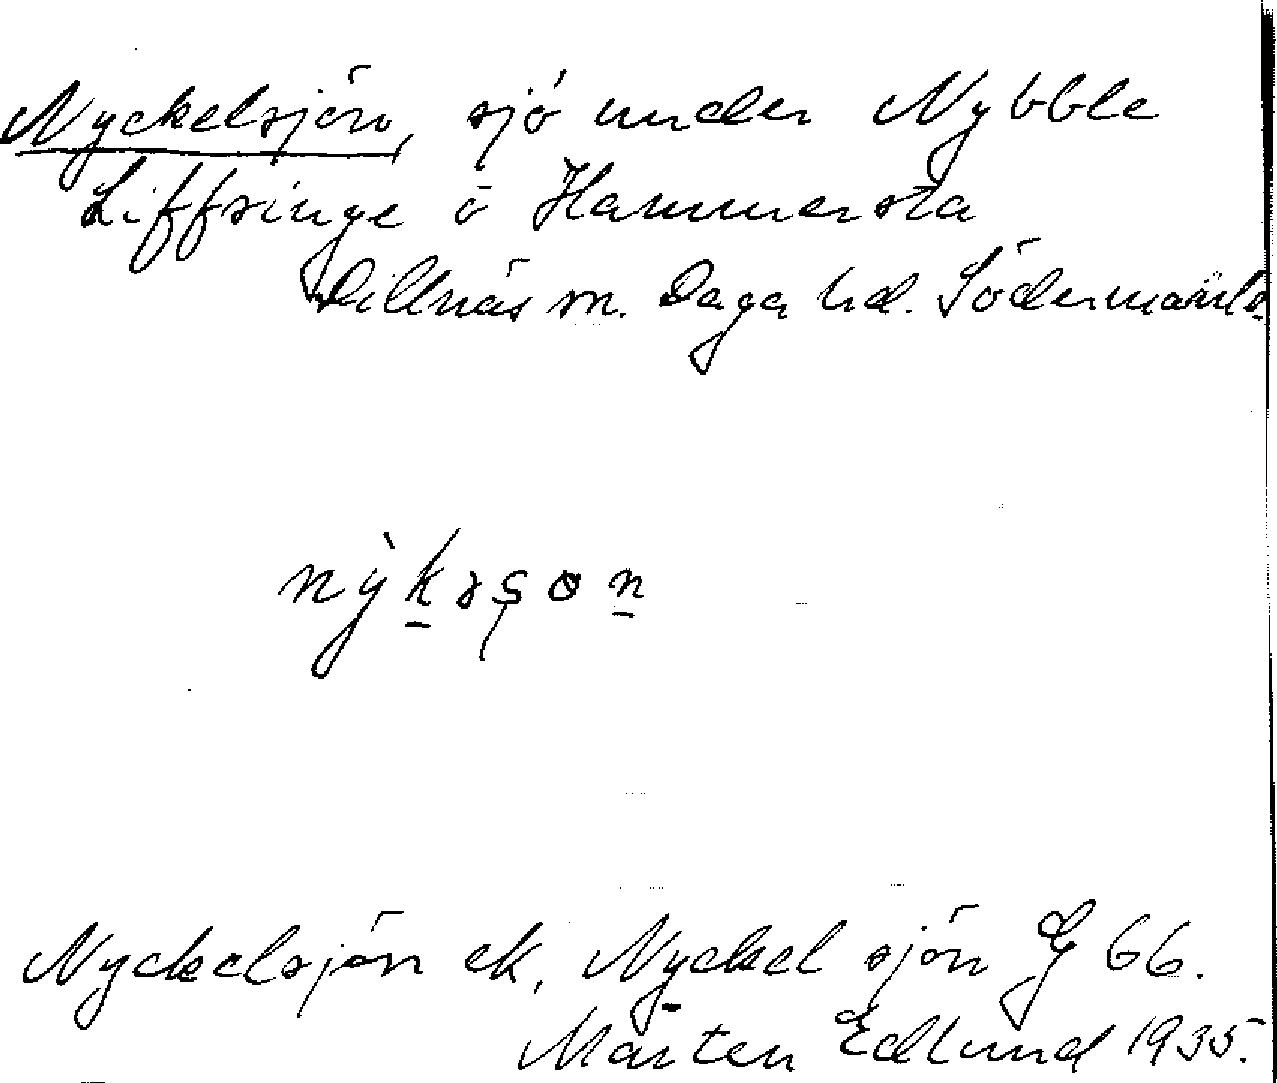 Nyckelsjön, sjö under Nybble
Liffsinge o Hammersta
Dillnäs sn. Daga hd. Södermanl.
Nyckelsjön ek, Nyckel sjön G 66.
Mårten Edlund 1935.